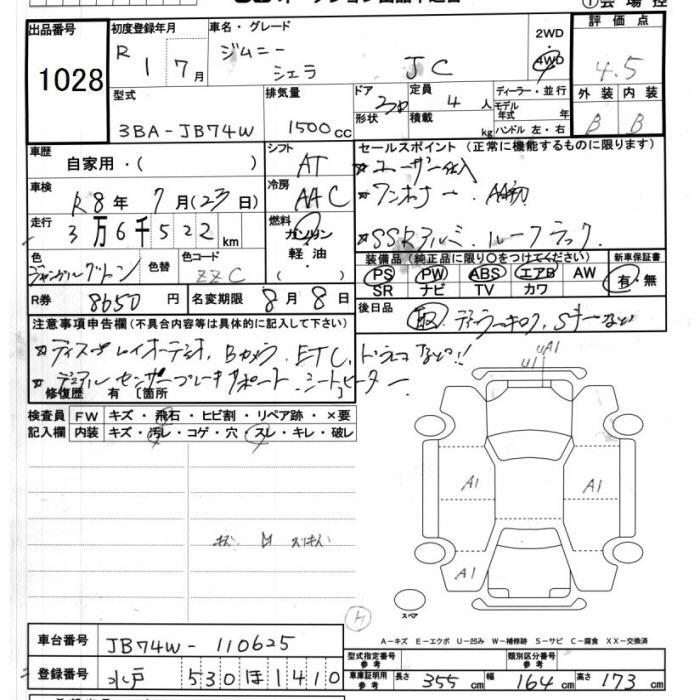 ① 会 場 控
出品番号 初度登録年月 車名・グレード 2WD 評 価 点
1028 R 1 7月 ジムニー シエラ JC 4WD 4.5
型式 排気量 ドア 定員 ディーラー・並行 外 装 内 装
3BA-JB74W 1500cc 4人 モデル年式 年 B B
形状 積載 kg ハンドル 左・右
車歴 シフト セールスポイント (正常に機能するものに限ります)
自家用・( ) AT *ユーザー仕入
車検 冷房 *ワンオーナー AA初
R8年 7月(23日) AAC
走行 燃料
3万6千522km ガソリン *SSRアルミ、ルーフラック、
色 色替 色コード 軽油・ 装備品(純正品に限り○をつけてください) 新車保証書
ジャングルグリーン ZZC ( ) PS PW ABS エアB AW 有・無
SR ナビ TV カワ
R券 8650円 名変期限 8月8日 後日品 取、
注意事項申告欄(不具合内容等は具体的に記入して下さい)
*ディスプレイオーディオ、Bカメラ、ETC、ドラレコなど!!
*デュアルセンサーブレーキサポート、シートヒーター
修復歴 有 [箇所
検査員 FW キズ・飛石・ヒビ割・リペア跡・×要
記入欄 内装 キズ・汚レ・コゲ・穴・スレ・キレ・破レ
U1 A1
A1 A1
A1
スペア
A−キズ E−エクボ U−凹み W−補修跡 S−サビ C−腐食 XX−交換済
車台番号 JB74W-110625 型式指定番号 参考 類別区分番号 参考
登録番号 水戸 530 ほ 1410 車庫証明用 参考 長さ 355cm 幅 164cm 高さ 173cm